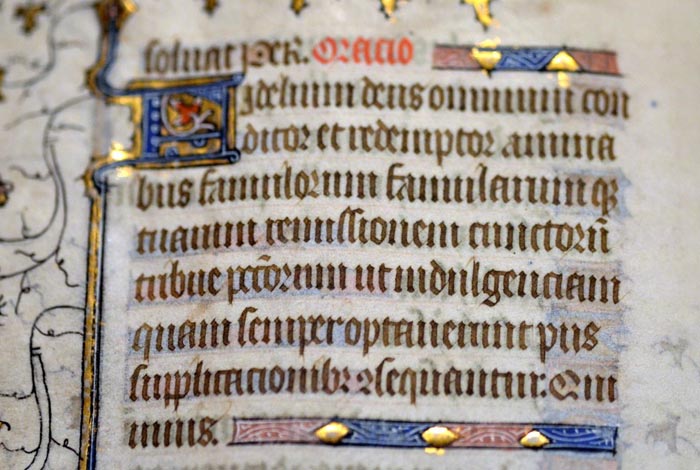 soluat Per. Oracio
Fidelium deus omnium con
ditor et redemptor anima
bus famulorum famularumqꝫ
tuarum remissionem cunctorū
tribue pctōrum ut indulgenciam
quam semper optauerunt piis
supplicacionibꝫ ꝯsequantur: Qui
uiuis.